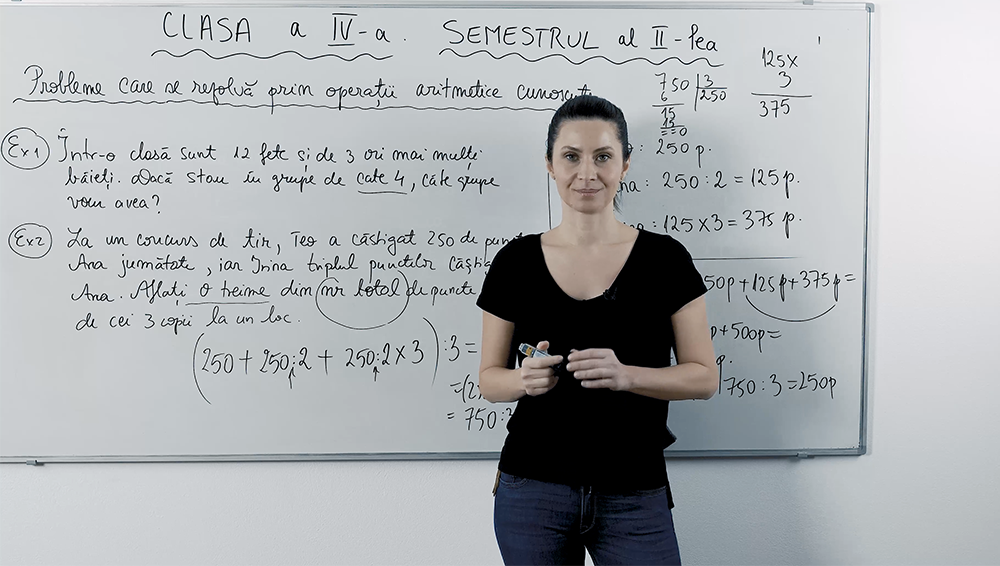 CLASA a IV-a. SEMESTRUL al II-lea
Probleme care se rezolvă prin operații aritmetice
Ex1 Într-o clasă sunt 12 fete și de 3 ori mai mulți
băieți. Dacă stau în grupe de câte 4, câte grupe
vom avea?
Ex2 La un concurs de tir, Teo a câștigat 250 de
Ana jumătate, iar Irina triplul punctelor
Ana. Aflați o treime din nr total de puncte
de cei 3 copii la un loc.
(250 + 250:2 + 250:2 x 3) :3 =
= 750:
750 3
6 250
15
15
==0
125x
3
375
250 p.
: 250 : 2 = 125 p.
: 125 x 3 = 375 p.
50p + 125p + 375p =
+ 500p =
750 : 3 = 250p